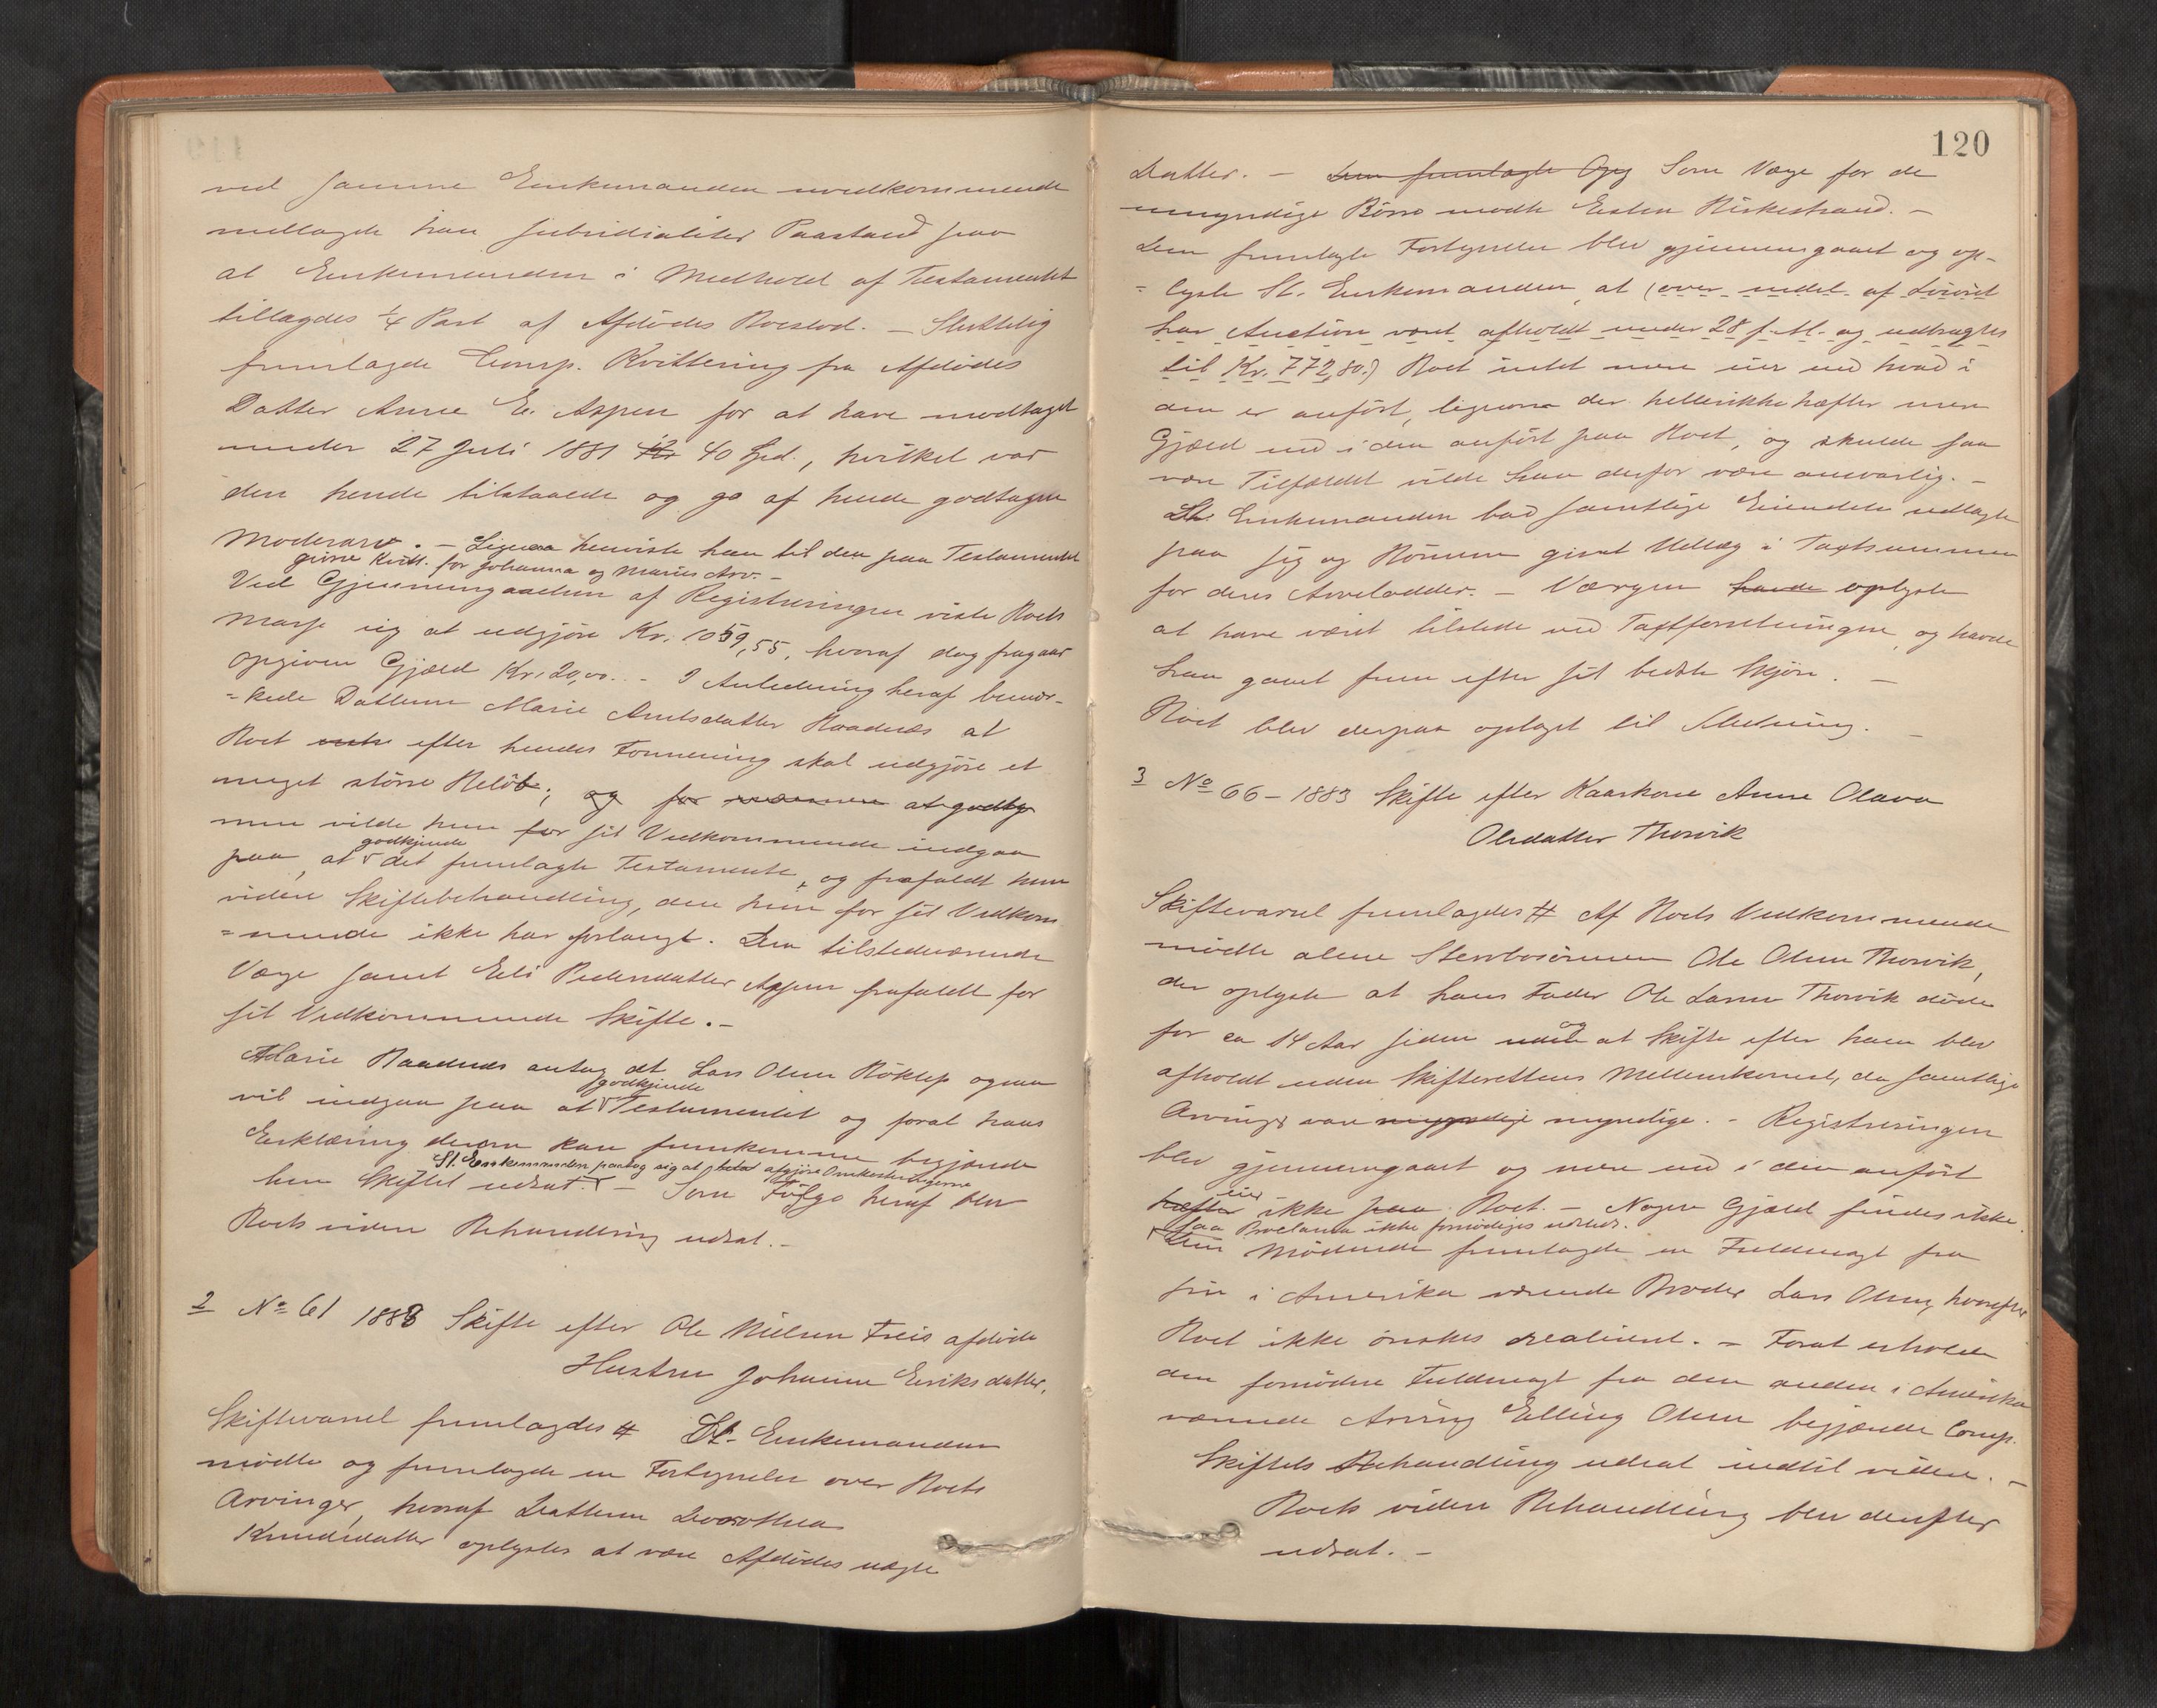 ved samme Enkemanden uvedkommende
nedlagde han subsidialiter Paastand paa
at Enkemanden i Medhold af Testamentet
tillægdes 1/4 Part af Afdødes Boeslod. – Sluttelig
fremlagde Comp. Kvittering fra Afdødes
Datter Anne E. Aspen for at have modtaget
under 27 Juli 1881 Kr 40 Spd., hvilket var
den hende tilstaaede og go af hende godtagne
Moderarv. – Ligesaa henviste han til den paa Testamentet
givne Kvitt. for Johanna og Maries Arv. –
Ved Gjennemgaaelsen af Registreringen viste Boets
Masse sig at udgjøre Kr. 1059,55, hvoraf dog fragaar
opgiven Gjæld Kr. 20,00. – I Anledning heraf bemær-
=kede Datteren Marie Amtsdatter Raadnæs at
Boet efter hendes Formening skal udgjøre et
meget større Beløb; og for at godtg
men vilde hun for sit Vedkommende indgaa
paa, at godkjende det fremlagte Testamente, og frafaldt hun
videre Skiftebehandling, den hun for sit Vedkom
=mende ikke har forlangt. Den tilstedeværende
Værge samt Eli Pedersdatter Aspen frafaldt for
sit Vedkommende Skifte. –
Marie Raadnæs antog at Lars Olsen Røklep ogsaa
vil indgaa paa at godkjende Testamentet og forat hans
Erklæring derom kan fremkomme begjærede
St. Enkemanden paatog sig at afgjøre Omkostningerne
hun Skiftet udsat. – Som Følge heraf blev
Boets videre Behandling udsat. –
2 No 61 1883 Skifte efter Ole Nielsen Freis afdøde
Hustru Johanne Eriksdatter.
Skiftevarsel fremlagdes # St. Enkemanden
mødte og fremlagde en Fortegnelse over Boets
Arvinger, hvoraf Datteren Dorothea
Knudsdatter oplystes at være Afdødes uægte
120
Datter. – Den fremlagte Opg Som Værge for de
umyndige Børn mødte Esten Birkestrand. –
Den fremlagte Fortegnelse blev gjennemgaaet og op-
=lyste St. Enkemanden, at (over endel af Løsøret
har Auction været afholdt under 28 f. M. og udbragtes
til Kr. 772,80.) Boet intet mere eier end hvad i
den er anført, ligesom der hellerikke hæfter mere
Gjæld end i den anført paa Boet, og skulde saa
være Tilfældet vilde han derfor være ansvarlig. –
St. Enkemanden bad samtlige Eiendele udlagte
paa sig og Børnene givet Udlæg i Taxtsummen
for deres Arvelodder. – Værgen havde oplyste
at have været tilstede ved Taxtforretningen, og havde
han gaaet frem efter sit bedste Skjøn. –
Boet blev derpaa optaget til Slutning. –
3 No 66 – 1883 Skifte efter Kaarkone Anne Olava
Olsdatter Thorvik
Skiftevarsel fremlagdes # Af Boets Vedkommende
mødte alene Stervbosønnen Ole Olsen Thorvik,
der oplyste at hans Fader Ole Larsen Thorvik døde
for ca 14 Aar siden og at Skifte efter ham blev
afholdt uden Skifterettens Mellemkomst, da samtlige
Arvinger vare myndige. – Registreringen
blev gjennemgaaet og mere end i den anført
hæfter eier ikke paa Boet. – Nogen Gjæld findes ikke
saa Proclama ikke fornødiges udstedt.
Den Mødende fremlagde en Fuldmagt fra
sin i Amerika værende Broder Lars Olsen, hvorefter
Boet ikke ønskes realiseret. – Forat erholde
den fornødne Fuldmagt fra den anden i Amerika
værende Arving Elling Olsen begjærede Comp.
Skiftets Behandling udsat indtil videre. –
Boets videre Behandling blev derefter
udsat. –